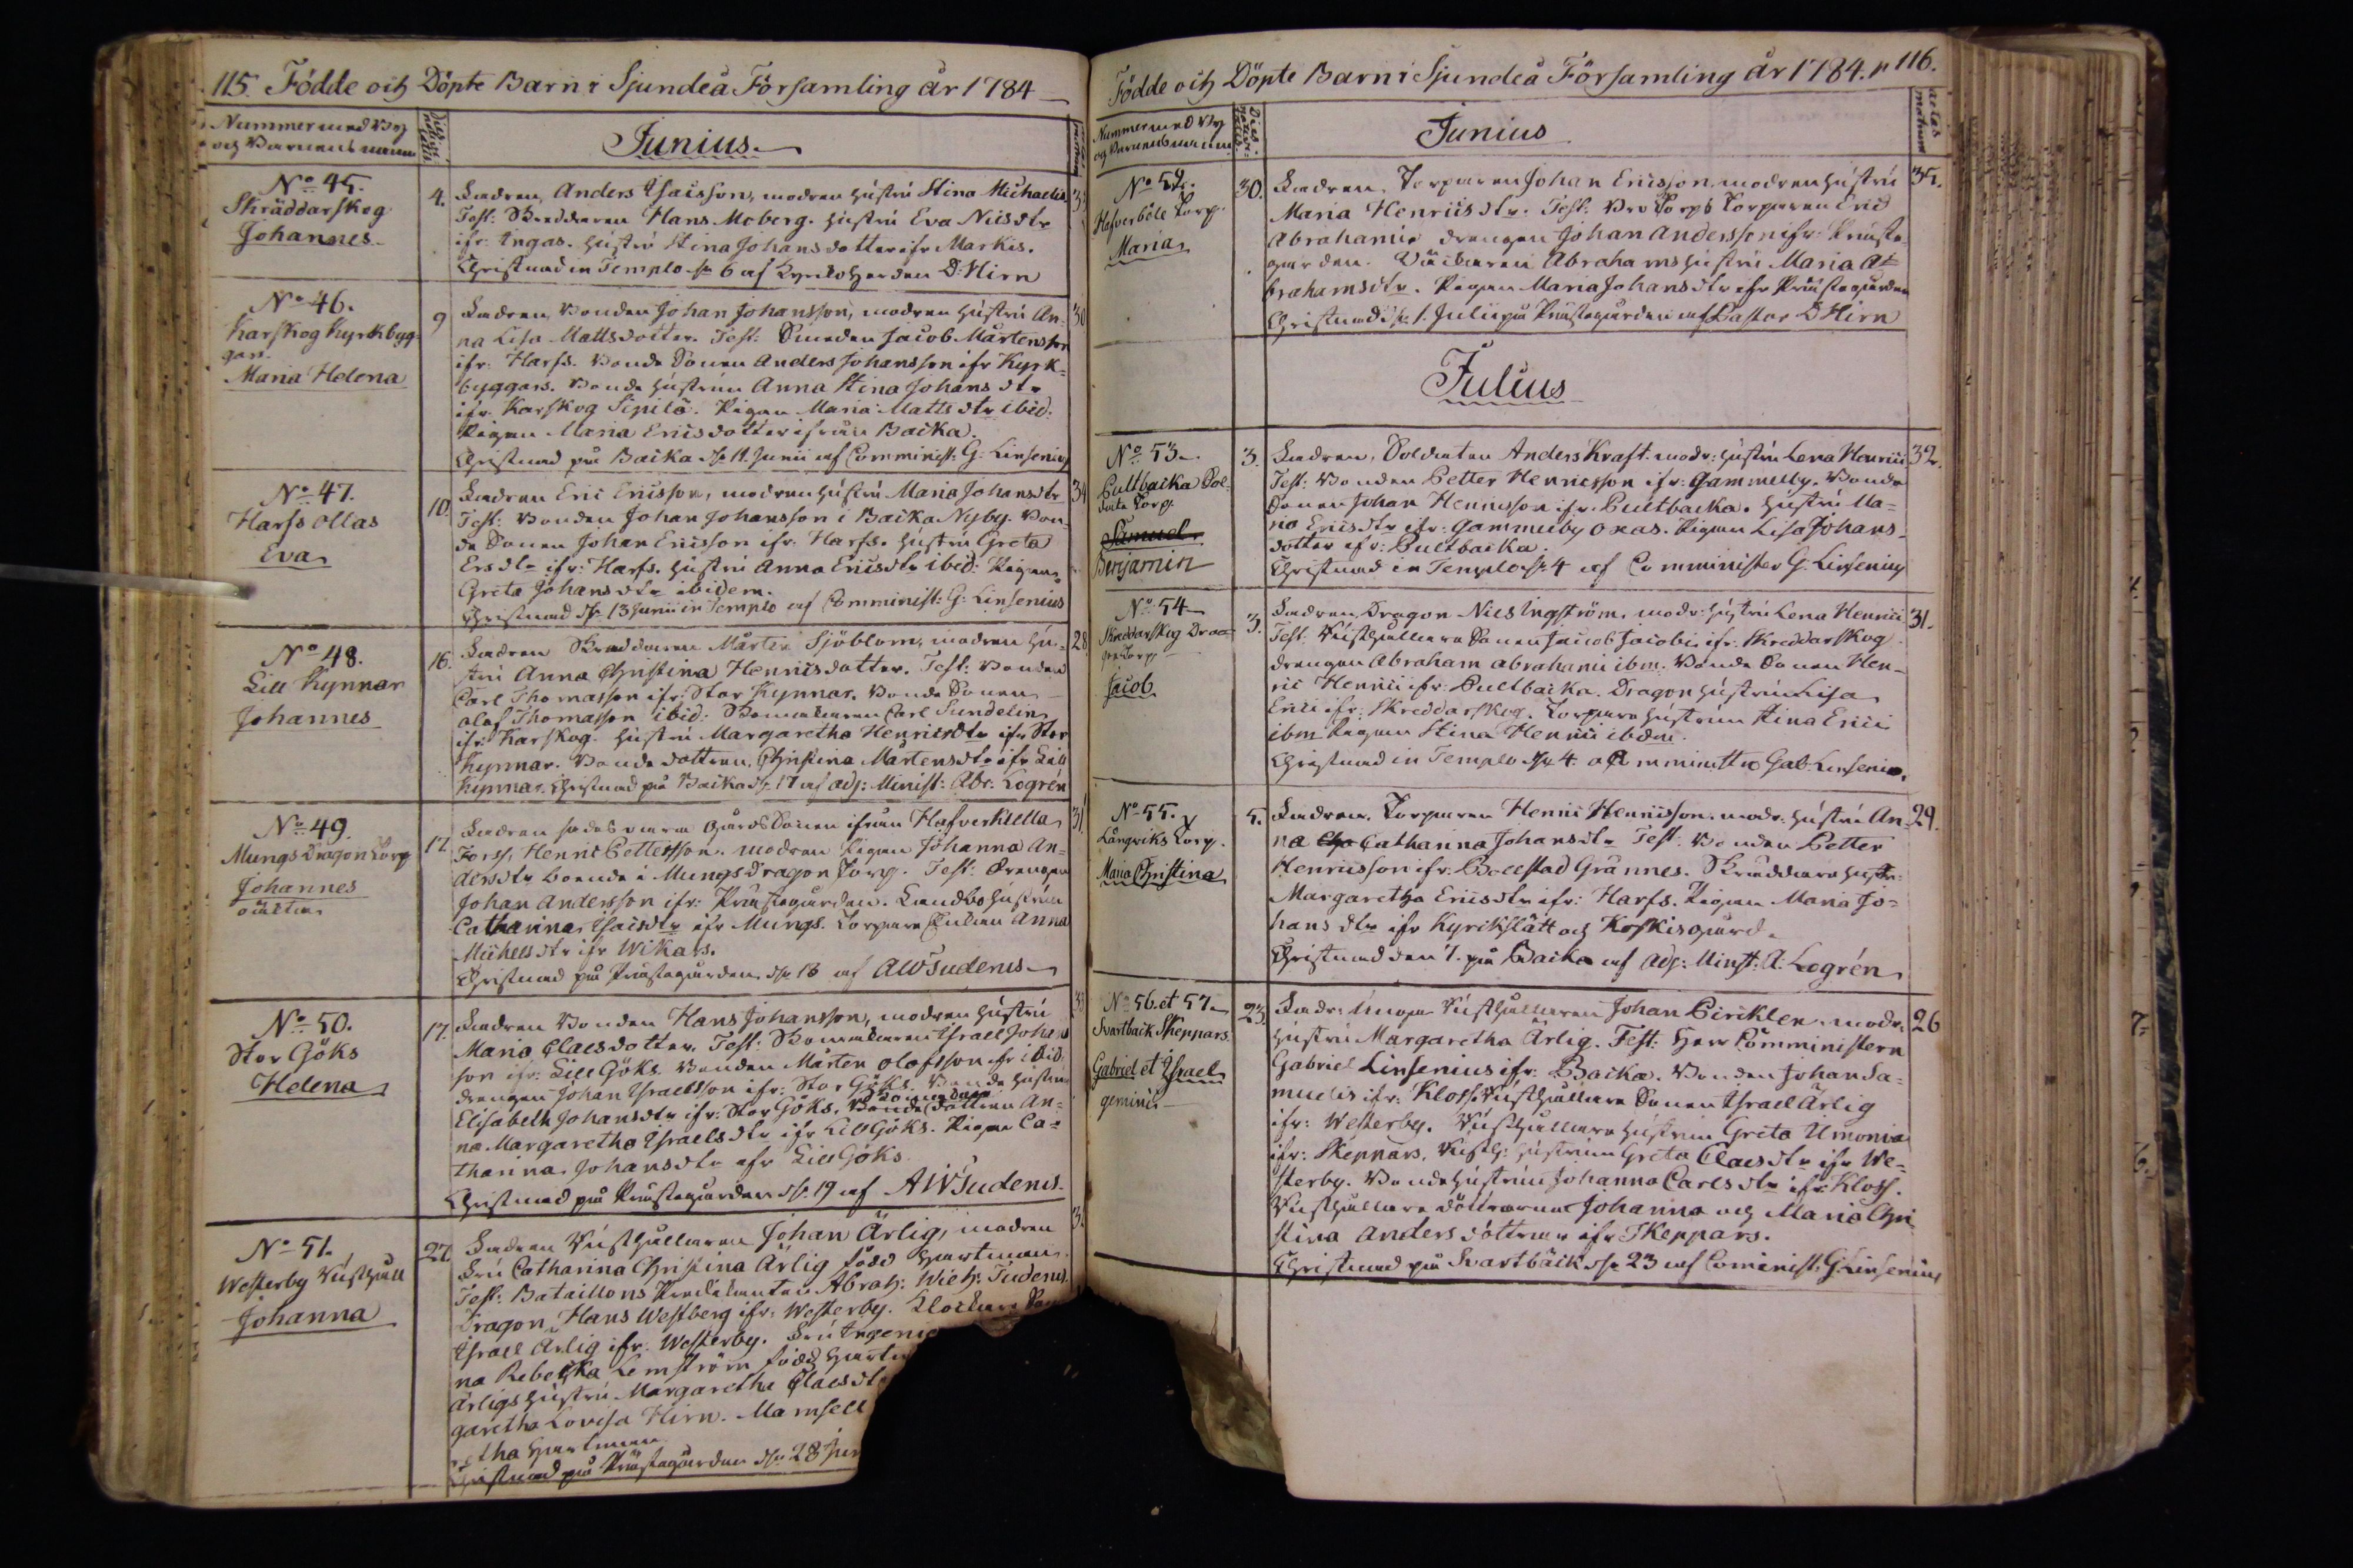 115. Födde och Döpte Barn i Sjundeå Församling år 1784
Nummer med By
och Barnens namn
Junius
No 45.
Skräddarskog
Johannes
4. Fadren, Anders Isacsson, modren hustru Stina Michaelis
Test: Hans Moberg. hustru Eva Nilsdtr
ifr: Ingas. hustru Stina Johansdotter ifr Markis.
Christnad in Templo d. 6 af Kyrkoherden D: Hirn
No 46.
Karskog Kyrkbyg-
gars
Maria Helena
9 Fadren, Bonden Johan Johansson, modren hustru An- 30
na Lisa Mattsdotter. Test: Smeden Jacob Mårtensson
ifr: Harfs. Bonde Sonen Anders Johansson ifr Kyrk-
byggars. Bonde hustrun Anna Stina Johansdtr
ifr. Karskog Sipilä. Pigan Maria Mattsdtr ibid.
Pigan Maria Ericsdotter ifrån Backa.
Christnad på Backa d. 11. Junii af Comminist: G: Linsenius
No 47.
Harfs ollas
Eva
10. Fadren Eric Ericsson, modren hustru Maria Johansdtr 34
Test: Bonden Johan Johansson i Backa Nyby. Bon-
de Sonen Johan Ericsson ifr: Harfs. hustru Greta
Ersdtr ifr: Harfs. hustru Anna Ericsdtr ibid: Pigan
Greta Johansdtr ibidem.
Christnad d. 13 Junii in Templo af Comminist: G: Linsenius
No 48.
Lill Kynnar
Johannes
16. Fadren Skräddaren Mårten Sjöblom, modren hu- 28
stru Anna Christina Henricsdotter. Test: Bonden
Carl Thomasson ifr: Stor Kynnar. Bonde Sonen
Olof Thomasson ibid: Skomakaren Carl Sundelin
ifr: Karskog. hustru Margaretha Henricsdtr ifr Stor
Kynnar. Bonde dottren, Christina Mårtensdtr ifr Lill
Kynnar. Christnad på Backa d. 17 af adj: Minist: Abr: Logrén
No 49.
Mungs Dragon Torp
Johannes
oäkta
17. Fadren Gårds Sonen ifrån Hafverkulla 31
Forss, Henric Pettersson. modren Pigan Johanna An-
dersdtr boende i Mungs dragon Torp. Test: drengen
Johan Andersson ifr: Prästegården. Landbo hustrun
Catharina Isacsdtr ifr Mungs. Torpare Enkan Anna
Michelsdtr ifr Wikars.
Christnad på Prästegården d. 18 af AWTudenus
No 50.
Stor Göks
Helena
17. Fadren Bonden Hans Johansson, modren hustru 33
Maria Claesdotter. Test: Skomakaren Israel Johans
son ifr: Lill Göks. Bonden Mårten Olofsson ifr ibid.
drengen Johan Israelsson ifr: Stor Göks. Bonde hustrun
Elisabeth Johansdtr ifr: Stor Göks. Bonde dottren An-
na Margaretha Israelsdtr ifr Lill Göks. Pigan Ca-
tharina Johansdtr ifr Lill Göks
Christnad på Prästegården d. 19 af AWTudenus.
No 51.
Westerby Rusthåll
Johanna
27 Fadren Rusthållaren Johan Ärlig, modren
Fru Catharina Christina Ärlig född Hartman.
Test: Bataillons Predikanten Abrah: Wilh: Tudenus.
Dragon Hans Westberg ifr: Westerby. Klockare Son
Israel Ärlig ifr. Westerby. Fru
na Rebecka Lemström född Hartm
Ärligs hustru Margaretha Claesdt
garetha Lovisa Hirn. Mamsell
retha Hartman
Christnad på Prästegården d. 28 Jun
Födde och Döpte Barn i Sjundeå Församling år 1784. 116.
Nummer med By
och Barnens namn
Junius
aetas
matrum
No 52.
Hafverböle Torp.
Maria
30. Fadren, Torparen Johan Ericsson, modren hustru 35.
Maria Henricsdtr. Test: Torparen Eric
Abrahami drengen Johan Andersson ifr: Präste-
gården. Abrahams hustru Maria A-
brahamsdtr. Pigan Maria Johansdtr ifr Prästegården
Christnad d. 1. Julii på Prästegården af Pastor D Hirn
Julius
No 53.
Pultbacka Sol-
data Torp.
Samuel
Benjamin
3. Fadren, Soldaten Anders Kraft. modr: hustru Lena Henrici 32.
Test: Bonden Petter Henricsson ifr: Gammelby. Bonde
Sonen Johan Henricsson ifr. Pultbacka. hustru Ma-
ria Ericsdtr ifr: Gammelby Oxas. Pigan Lisa Johans-
dotter ifr: Pultbacka.
Christnad in Templo d. 4 af Comminister G: Linsenius
No 54
Skreddarskog Dra-
gon Torp
Jacob
3. Fadren, Dragon Nils Ingström, modr: hustru Lena Henrici 31.
Test. Rusthållare Sonen Jacob Jacobi ifr. Skreddarskog
drengen Abraham Abrahami ibm. Bonde Sonen Hen-
ric Henrici ifr: Pultbacka. Dragon hustrun Lisa
Erici ifr: Skreddarskog. Torpare hustrun Stina Erici
ibm Pigan Stina Henrici ibdm.
Christnad in Templo d. 4. Gab: Linsenius.
No 55.
Långviks Torp.
Maria Christina
5. Fadren, Torparen Henric Henricsson. modr. hustru An- 29.
na Cathanna Johansdtr Test. Bonden Petter
Henricsson ifr: Bollstad Grännes. Skräddare hustr:
Margaretha Ericsdtr ifr: Harfs. Pigan Maria Jo-
hansdtr ifr Kyrkslätt och Koskisgård.
Christnad den 7. på Backa af Adj: Minist: A. Logrén
No 56. et 57.
Svartbäck Skeppars.
Gabriel et Israel
gemini
23 Fadr: Rusthållaren Johan Pirckler. modr: 26
hustru Margaretha Ärlig. Test: Herr Comministern
Gabriel Linsenius ifr: Backa. Bonden Johan Sa-
muelis ifr: Kloss. Rusthållare Sonen Israel Ärlig
ifr: Westerby. Rusthållare hustrun Greta Simonis
ifr: Skeppars. Rusth: hustrun Greta Claesdtr ifr We-
sterby. Bonde hustrun Johanna Carlsdtr ifr: Kloss.
Rusthållare döttrarna Johanna och Maria Chri
stina Anders döttrar ifr Skeppars.
Christnad på Svartbäck d. 23 af Cominist: G: Linsenius